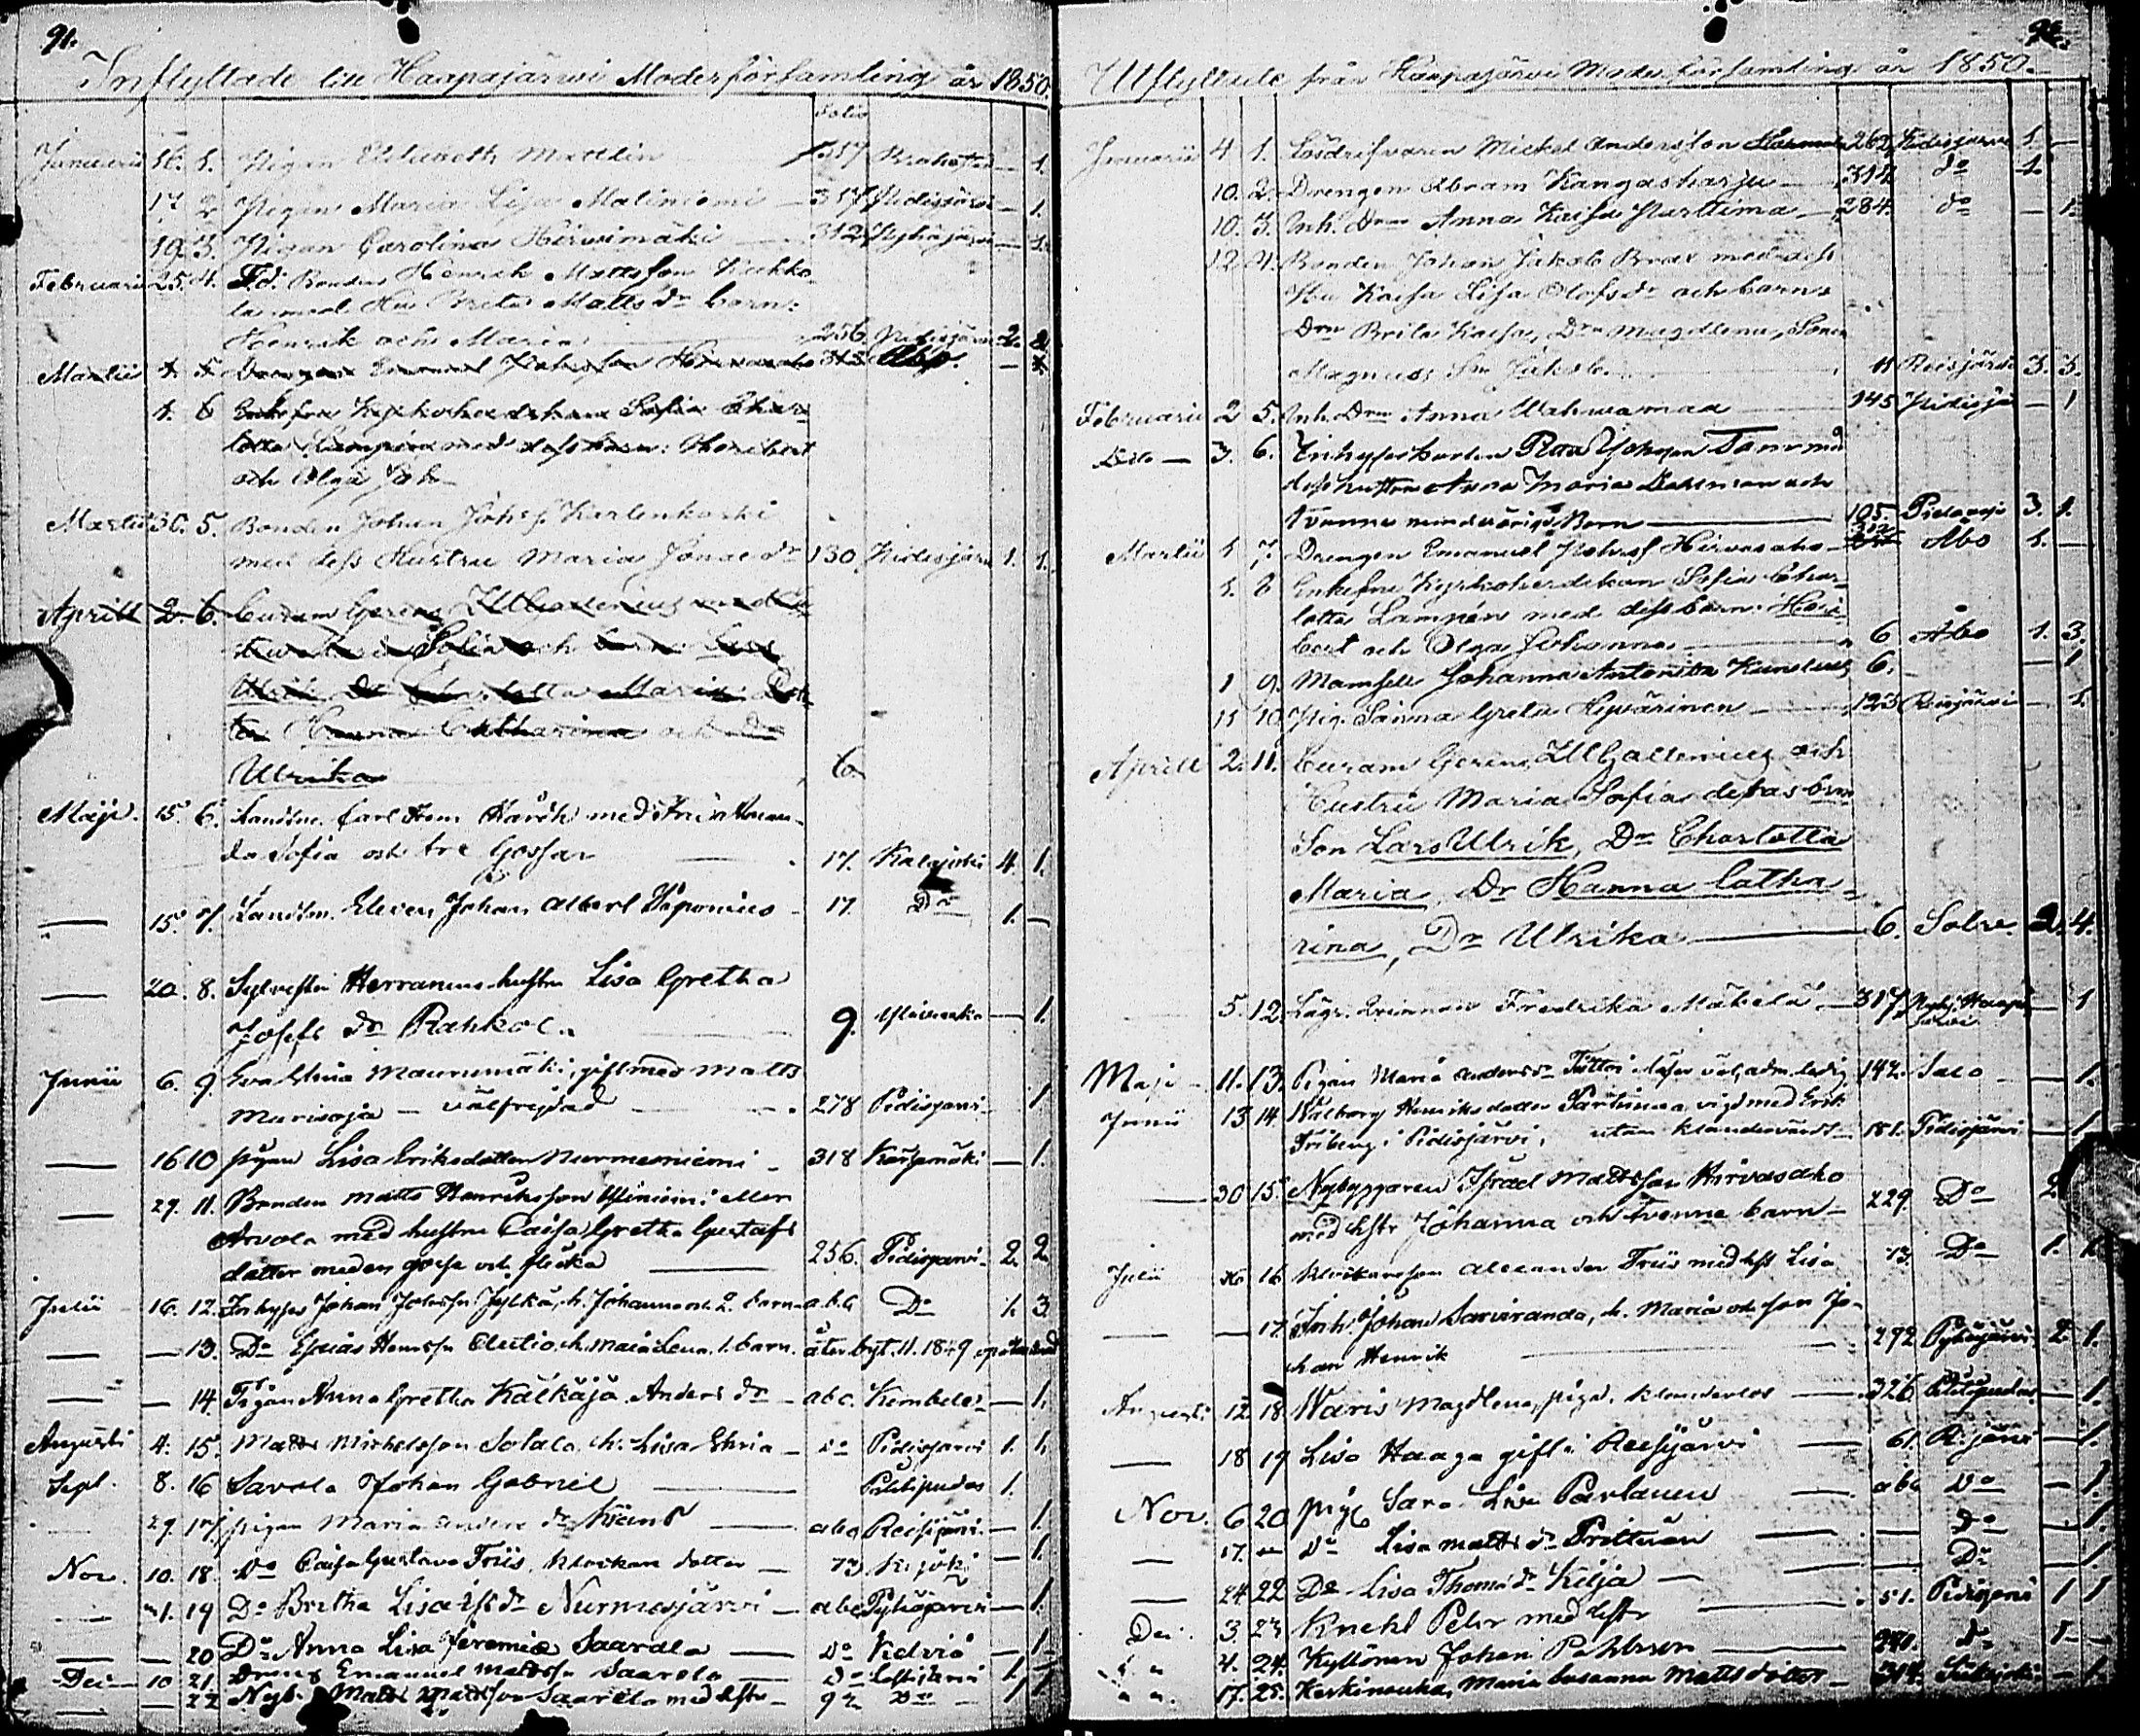 91.
Inflyttade till Haapajärwi Moderförsamling år 1850.
Folio
Januarii 16. 1. Pigan Elisabeth Mattlin 317 Brahestad — 1.
17 2 Pigan Maria Lisa Maliniemi — 317 Pidisjärvi — 1.
19. 3. Pigan Carolina Hirvimäki — 312 Pyhäjärvi — 1.
Februarii 25. 4. F.d. Bonden Henrik Mattsson Kukko-
la med Hu Brita Matts dr barn:
Henrik och Maria 256 Pidisjärvi 2 2
Martii 1. 5. Drengen Emanuel Johansson Hirvasaho 313 Åbo. —
1. 6 Enkefru Kyrkoherdskan Sofia Char-
lotta Lampén med dess barn: Heribert
och Olga Joh
Martii 30. 5. Bonden Johan Johss. Karlenkoski
med dess Hustru Maria Jonae dr 130 Pidisjärvi 1. 1.
Aprill 2. 6.
Sofia och barn Lars
Ulrik, Dr Charlotta Maria, Dot-
ter Hanna Catharina och Dr
Ulrika 6.
Maji. 15. 6. Landtm. Carl Hem. Karsh med Fru Aman-
da Sofia och tre Gossar 17. Kalajoki 4. 1.
— 15. 7. Landtm. Eleven Johan AlbertVäponius — 17. Do 1. —
— 20. 8. Sylvester Herranens hustru Lisa Gretha
Josefs dr Rahkola 9. Ylivieska — 1.
Junii 6. 9. Eva Stina Maununmäki, gift med Matts
Murisoja — välfrejdad — 278 Pidisjärvi — 1
— 16 10 pigan Lisa Eriksdotter Nurmesniemi — 318 Kärsämäki — 1.
— 29. 11. Bonden Matts Henriksson Yliniemi eller
Arvola med hustru Caisa Gretha Gustafs
dotter med en gosse och flicka — 256. Pidisjärvi. 2. 2
Julii 16. 12. Inhyses Johan Johnsson Jylkä, h. Johanna och 2. barn — a b c Do 1. 3
— — 13. Do Esaias Henrss. Autio, h. Maria Lena. 1. barn. återbyt. 11. 1849
— — 14. Pigan Anna Gretha Kälkäjä Anders dr — abc. Kembele — 1.
Augusti 4. 15. Matts Michelsson Solala h. Lisa Stina — Do Pidisjärvi 1. 1.
Sept. 8. 16 Savola Johan Gabriel — Pihtipudas 1.
29. 17. pigan Maria Anders dr — abc Reisjärvi. — 1.
Nov. 10. 18. Do Caisa Gustava Friis, klockare dotter — 73 — 1.
1. 19 Do Britha Lisa dr Nurmesjärvi — abc Pyhäjärvi — 1.
— 20 Do Anna Lisa Jeremiæ Saarela — Do Kelviå — 1.
Dec 10 21. Dreng Emanuel Mattss. Saarela — Do Lestijärvi 1. —
— 22 Nyb. Matts Mattsson Saarela med hstr — 92 Do — 1 1
92.
Utflyttade från Haapajärvi Moderförsamling år 1850.
Januarii 4 1. Lösdrifvaren Mickel Andersson 262 Pidisjärvi 1. —
10. 2. Drengen Abram Kangasharju — 314 do 1.
10. 3. Inh. Drn Anna Kaisa Parttima — 284. do — 1.
12 4. Bonden Johan Jakob Brax med dess
Hu Kaisa Lisa Olofs dr och barn:
Drn Brita Kaisa, Drn Magdlena, Sonen
Magnus, Sn Jakob. 11 Reisjärvi 3. 3.
Februarii 2 5. Inh. Drn Anna Wahwamaa 145 Pidisjä — 1
Dito — 3. 6. Inhysesharlen Johan
dess hustru Anna Maria och
tvenne minderåriga Barn — 105. Pidisjä 3. 1.
Martii 1 7. Drengen Emanuel Johss. Hirvasaho — 312 Åbo 1. —
1. 8 Enkefru Kyrkoherdskan Sofia Char-
lotta Lampén med dess barn: Heri-
bert och Olga Johanna. — 6 Åbo 1. 3.
1 9. Mamsell Johanna Antonetta 6. — 1
11 10. Pig. Sanna Greta Hyvärinen — 123 Reisjärvi — 1.
Aprill 2. 11. Curam Gerens Z M Gallenius och
Hustru Maria Sofia deras barn
Son Lars Ulrik, Dr Charlotta
Maria, Dr Hanna Catha-
rina, Dr Ulrika — 6. Sobre. 2. 4.
5. 12. Lägr. Qvinnan Fredrika Mäkelä — 317. Haapa
järvi — 1
Maji — 11. 13. Pigan Maria Anders dr läser väl, adm. ledig 142. Salo — 1.
Junii 13 14. Walborg Henriksdotter Parkima, vigd med Erik
Friberg i Pidisjärvi, utan klandervärdt — 181. Pidisjärvi — 1
— 30 15. Nybyggaren Israel Mattsson Hirvasaho
med hstr Johanna och tvenne barn — 229. Do 2
Julii 16 Klockaresson Alexander Friis med hst Lisa 73. Do 1. 1.
— — 17. Inh. Johan Sarviranda, h. Maria och son Jo-
han Henrik — 292 Pyhäjärvi. 2. 1.
Augusti 12. 18. Waris Magdlena, piga. klanderlös — 326 Pihtipudas — 1.
— 18 19 Lisa Haaga gift i Reisjärvi — 61. R. järvi — 1.
Nov. 6 20 piga Sara Lisa Parlanen — abc Do — 1.
— 17. Do Lisa Matts dr Prittinen — — Do — 1.
— 24 22 Do Lisa Thoms dr Kilja — — Do — 1.
Dec. 3. 23 Knekt Petr med hstr — 51. Pidisjärvi 1 1
4. 24. Kyllönen Johan Pehrson — 240. Do 1 —
17. 25. Keskinouka, Maria Susanna Mattsdotter — 314. — 1.